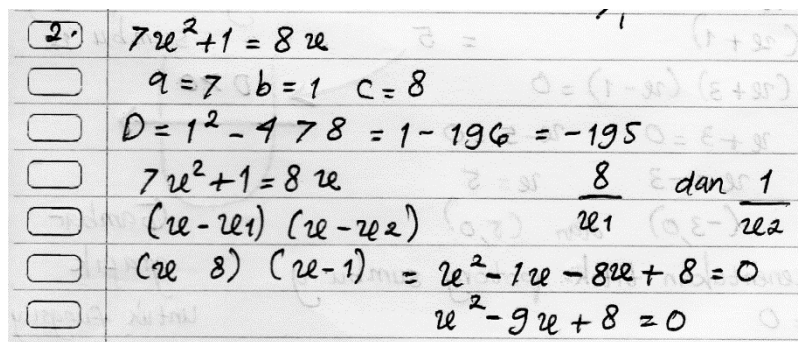 2. 7x²+1 = 8x
a = 7 b = 1 c = 8
D = 1² - 4 7 8 = 1 - 196 = -195
7x²+1 = 8x 8/x1 dan 1/x2
(x - x1) (x - x2)
(x 8) (x - 1) = x² - 1x - 8x + 8 = 0
x² - 9x + 8 = 0